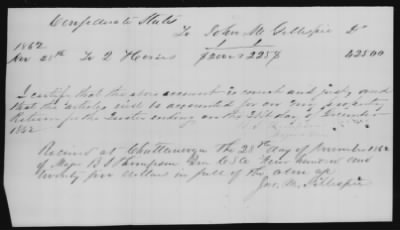 Confederate States
To John M Gillespie Dr
1862
Nov 28th To 2 Horses $200 & 225 $ 425 00
I certify that the above account is correct and just, and
that the articles will be accounted for on my property
Return for the Quarter ending on the 31st day of December
1862
Received at Chattanooga the 28th day of November 1862
of Major B J Thompson Qm C S A Four hundred and
twenty five dollars in full of the above
Jno. M. Gillespie